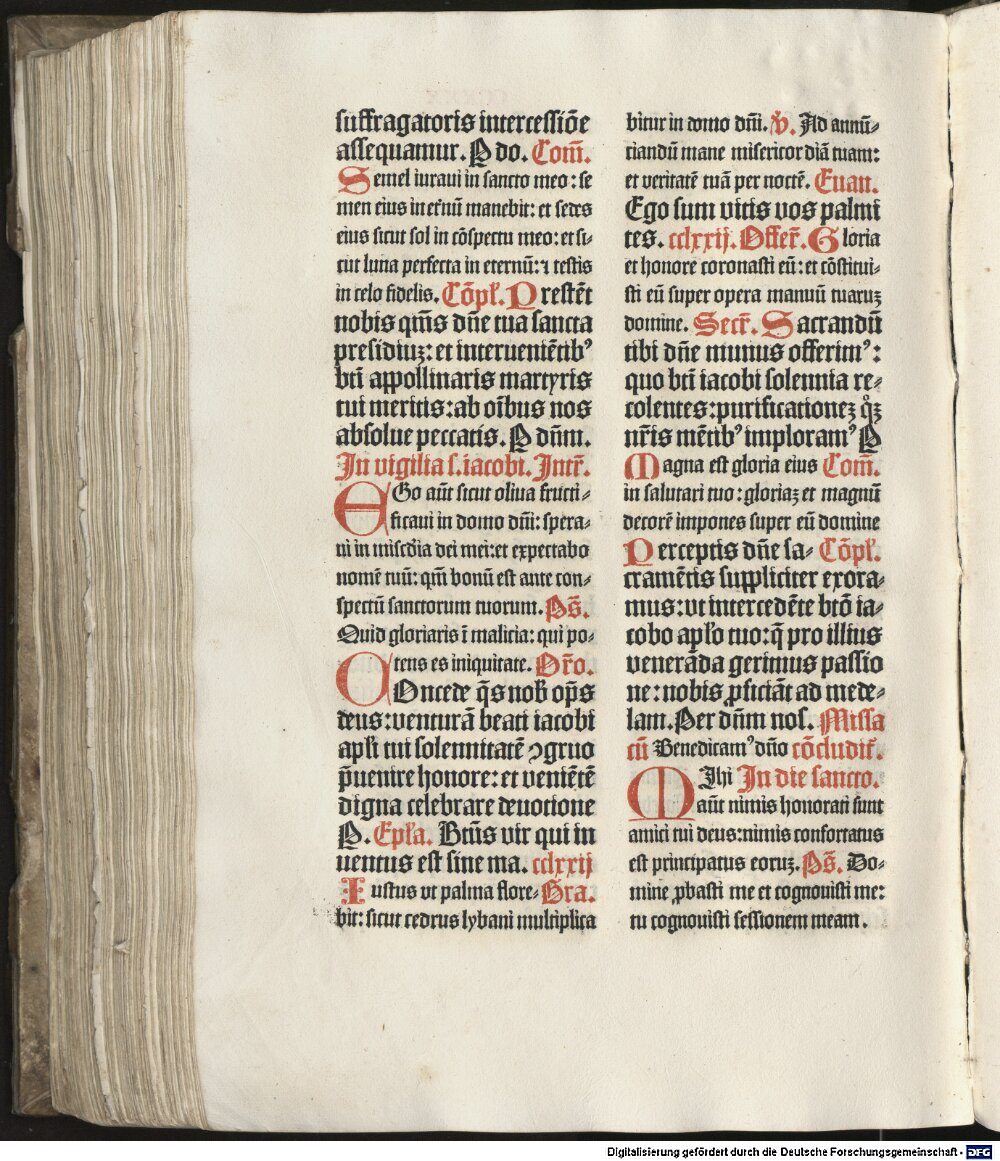 suffragatoris intercessiōe
assequamur. P do. Com̄.
Semel iuraui in sancto meo: se
men eius in et̄nū manebit: et sedes
eius sicut sol in cōspectu meo: et si⸗
cut luna perfecta in eternū: ⁊ testis
in celo fidelis. Cōpl̄. Prestēt
nobis qm̄s dn̄e tua sancta
presidiuꝫ: et interuenientibꝰ
bt̄i appollinaris martyris
tui meritis: ab oībus nos
absolue peccatis. P dn̄m.
In vigilia s. iacobi. Intr̄.
EGo aūt sicut oliua fructi⸗
ficaui in domo dn̄i: spera⸗
ui in misc̄dia dei mei: et expectabo
nomē tuū: qm̄ bonū est ante con⸗
spectū sanctorum tuorum. Ps̄.
Quid gloriaris ī malicia: qui po⸗
tens es iniquitate. Or̄o.
COncede q̄s nob̄ op̄s
deus: venturā beati iacobi
apl̄i tui solennitatē ꝯgruo
p̄uenire honore: et venietē
digna celebrare deuotione
P. Epl̄a. Bt̄us vir qui in
uentus est sine ma. cclxxij
Iustus ut palma flore⸗ Gra.
bit: sicut cedrus lybani multiplica
bitur in domo dn̄i. V̄. Ad annū⸗
ciandū mane misericordiā tuam:
et veritatē tuā per noctē. Euan.
Ego sum vitis vos palmi
tes. cclxxij. Offer̄. Gloria
et honore coronasti eū: et cōstitui⸗
sti eū super opera manuū tuaruꝫ
domine. Secr̄. Sacrandū
tibi dn̄e munus offerimꝰ:
quo bt̄i iacobi solennia re⸗
colentes: purificationeꝫ qͦꝫ
nr̄is mētibꝰ imploramꝰ P
Magna est gloria eius Com̄.
in salutari tuo: gloriaꝫ et magnū
decorē impones super eū domine
Perceptis dn̄e sa⸗ Cōpl̄.
cramētis suppliciter exora⸗
mus: vt intercedēte btō ia⸗
cobo apl̄o tuo: q̄ pro illius
venerāda gerimus passio
ne: nobis ꝓficiāt ad mede⸗
lam. Per dn̄m nos. Missa
cū Benedicamꝰ dn̄o cōcludit̄.
MIhi In die sancto.
aūt nimis honorati sunt
amici tui deus: nimis confortatus
est principatus eoruꝫ. Ps̄. Do⸗
mine ꝓbasti me et cognouisti me:
tu cognouisti sessionem meam.
Digitalisierung gefördert durch die Deutsche Forschungsgemeinschaft - DFG